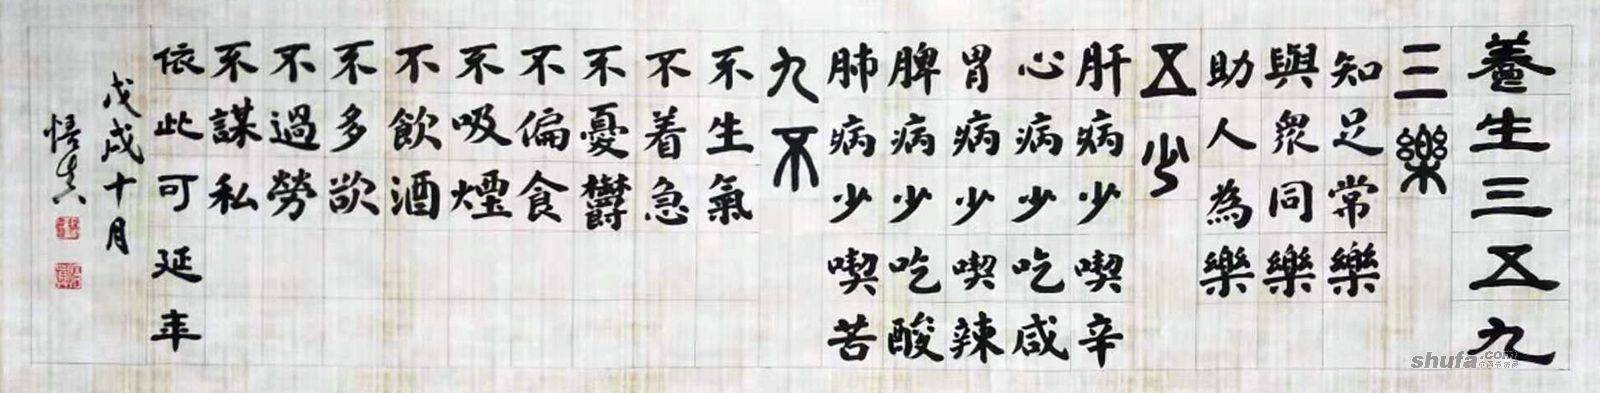 養生三五九
三樂
知足常樂
與衆同樂
助人為樂
五少
肝病少喫辛
心病少吃咸
胃病少喫辣
脾病少吃酸
肺病少喫苦
九不
不生氣
不着急
不憂鬱
不偏食
不吸煙
不飲酒
不多欲
不過勞
不謀私
依此可延年
戊戌十月
悟真
shufa.com